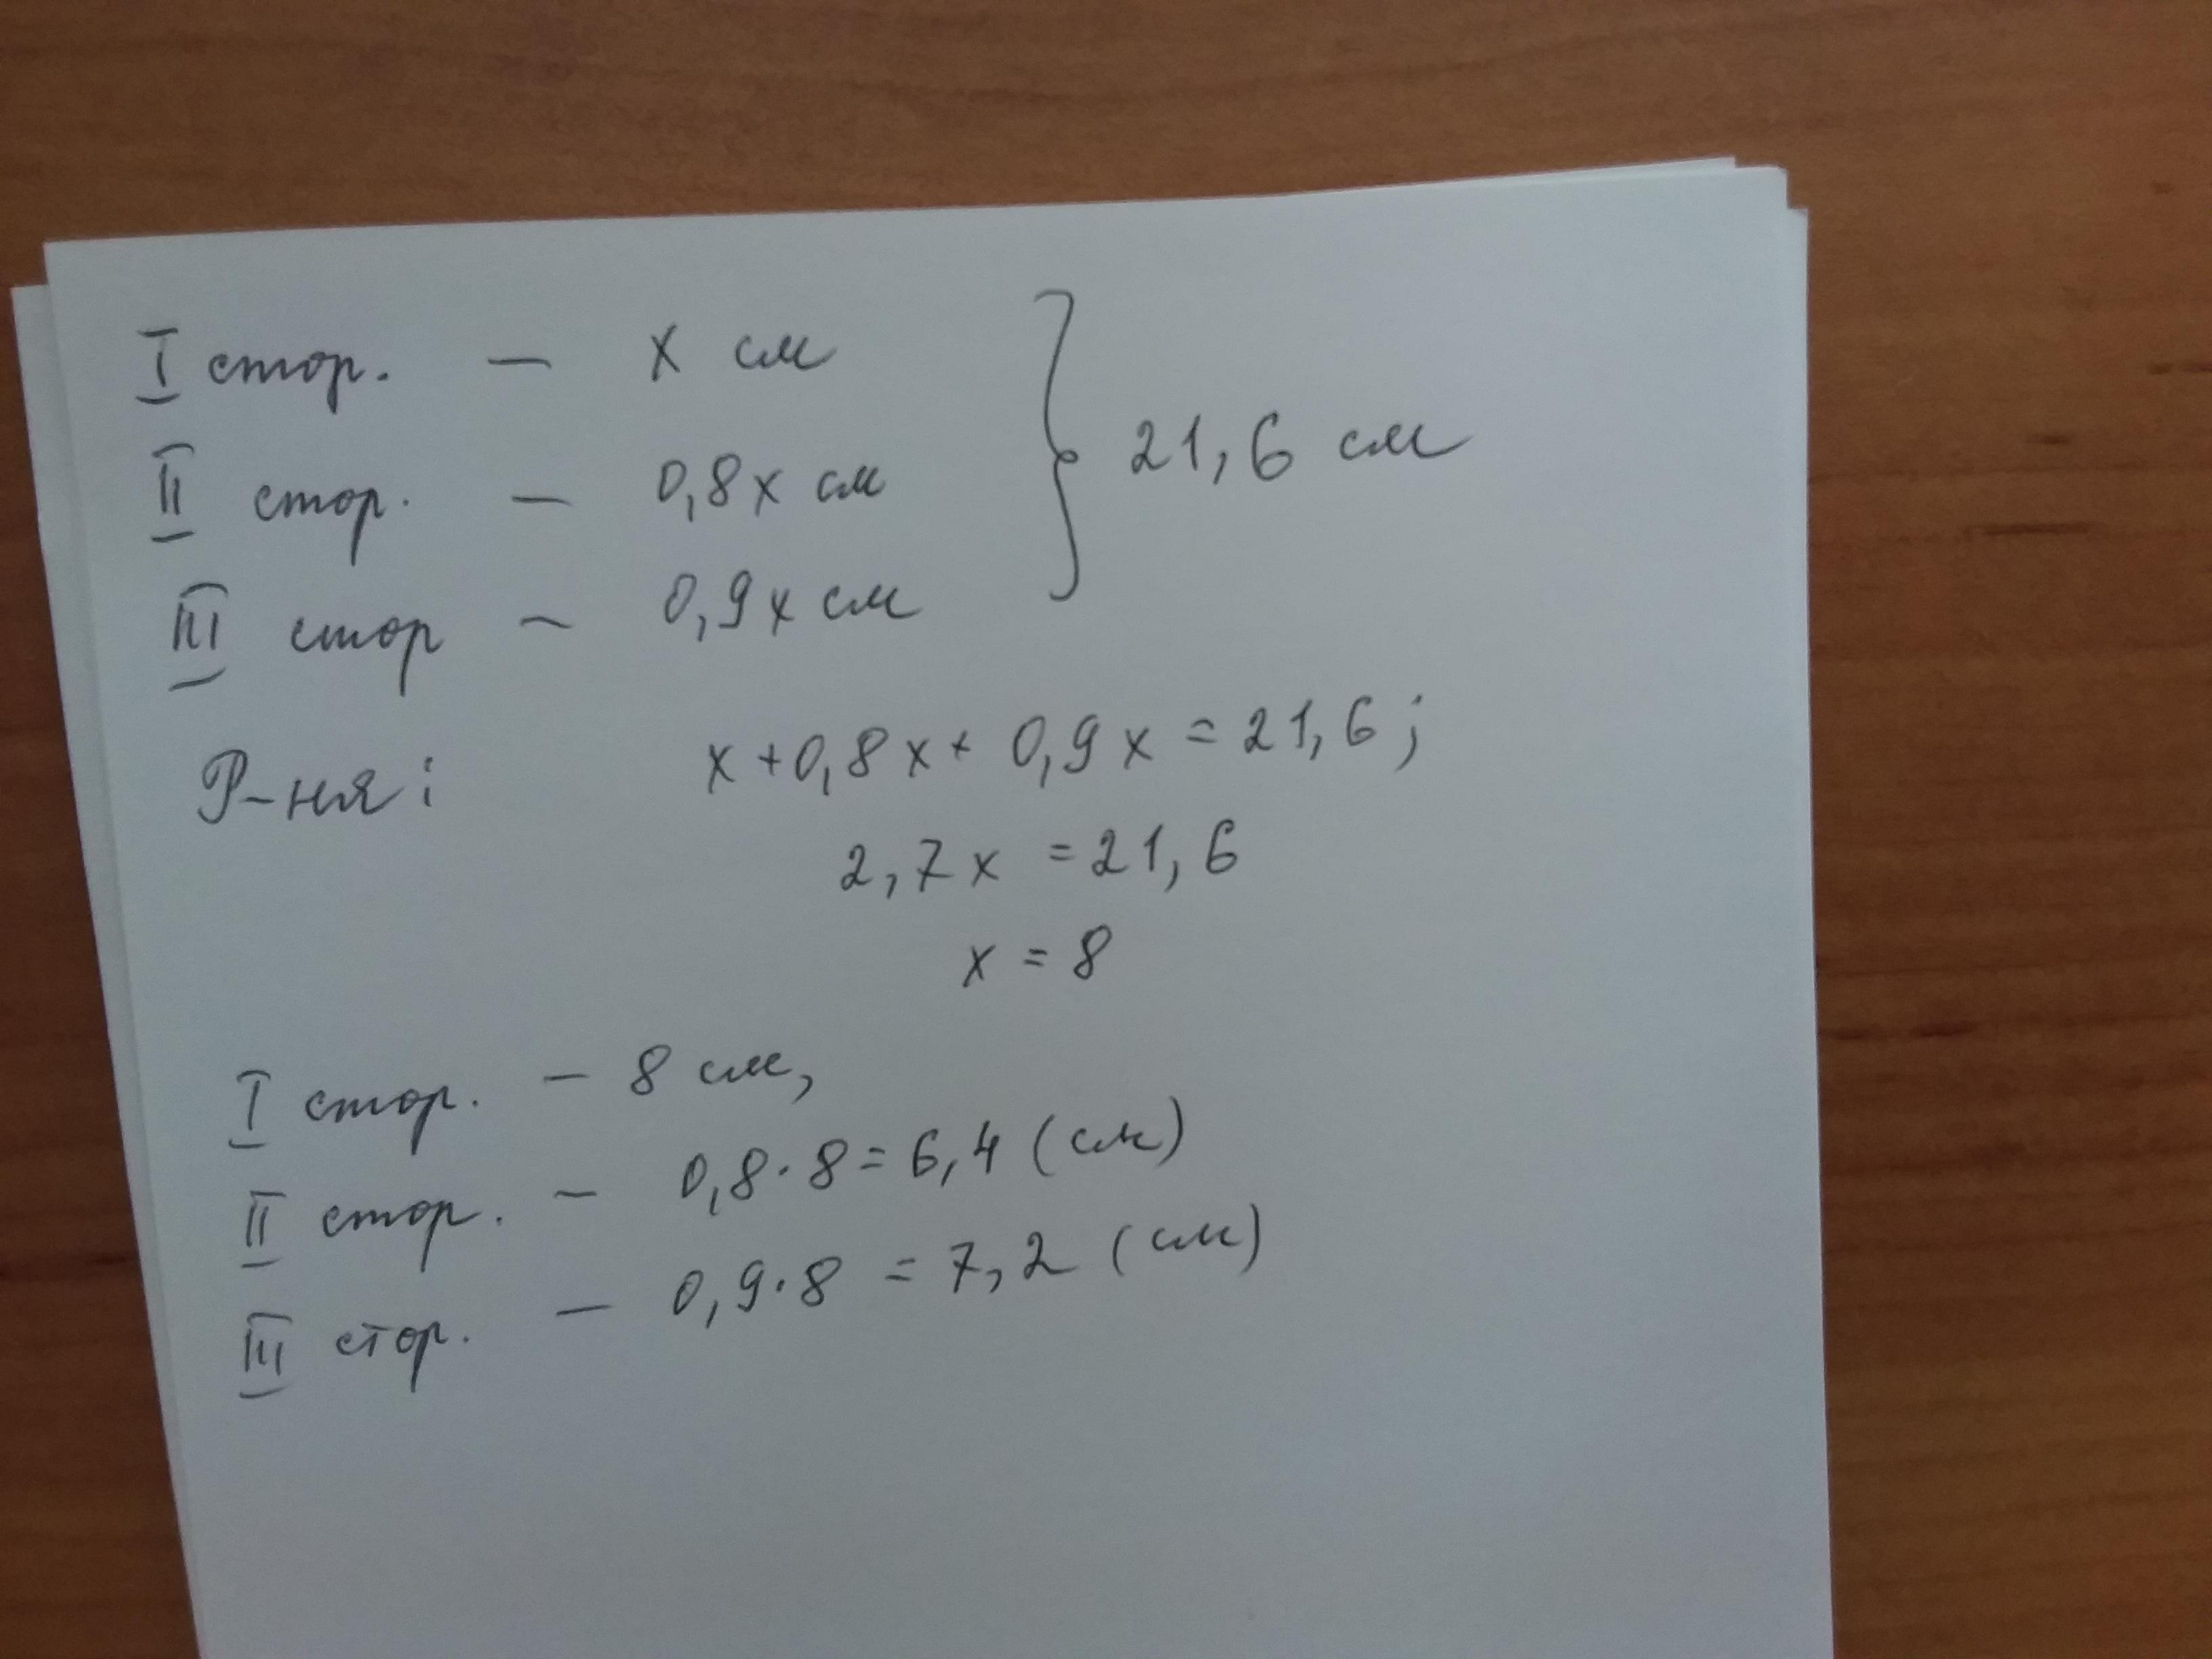 I стор. — x см
II стор. — 0,8x см
III стор — 0,9x см
} 21,6 см
Р-ня: x+0,8x+0,9x=21,6;
2,7x=21,6
x=8
I стор. — 8 см,
II стор. — 0,8·8=6,4 (см)
III стор. — 0,9·8=7,2 (см)